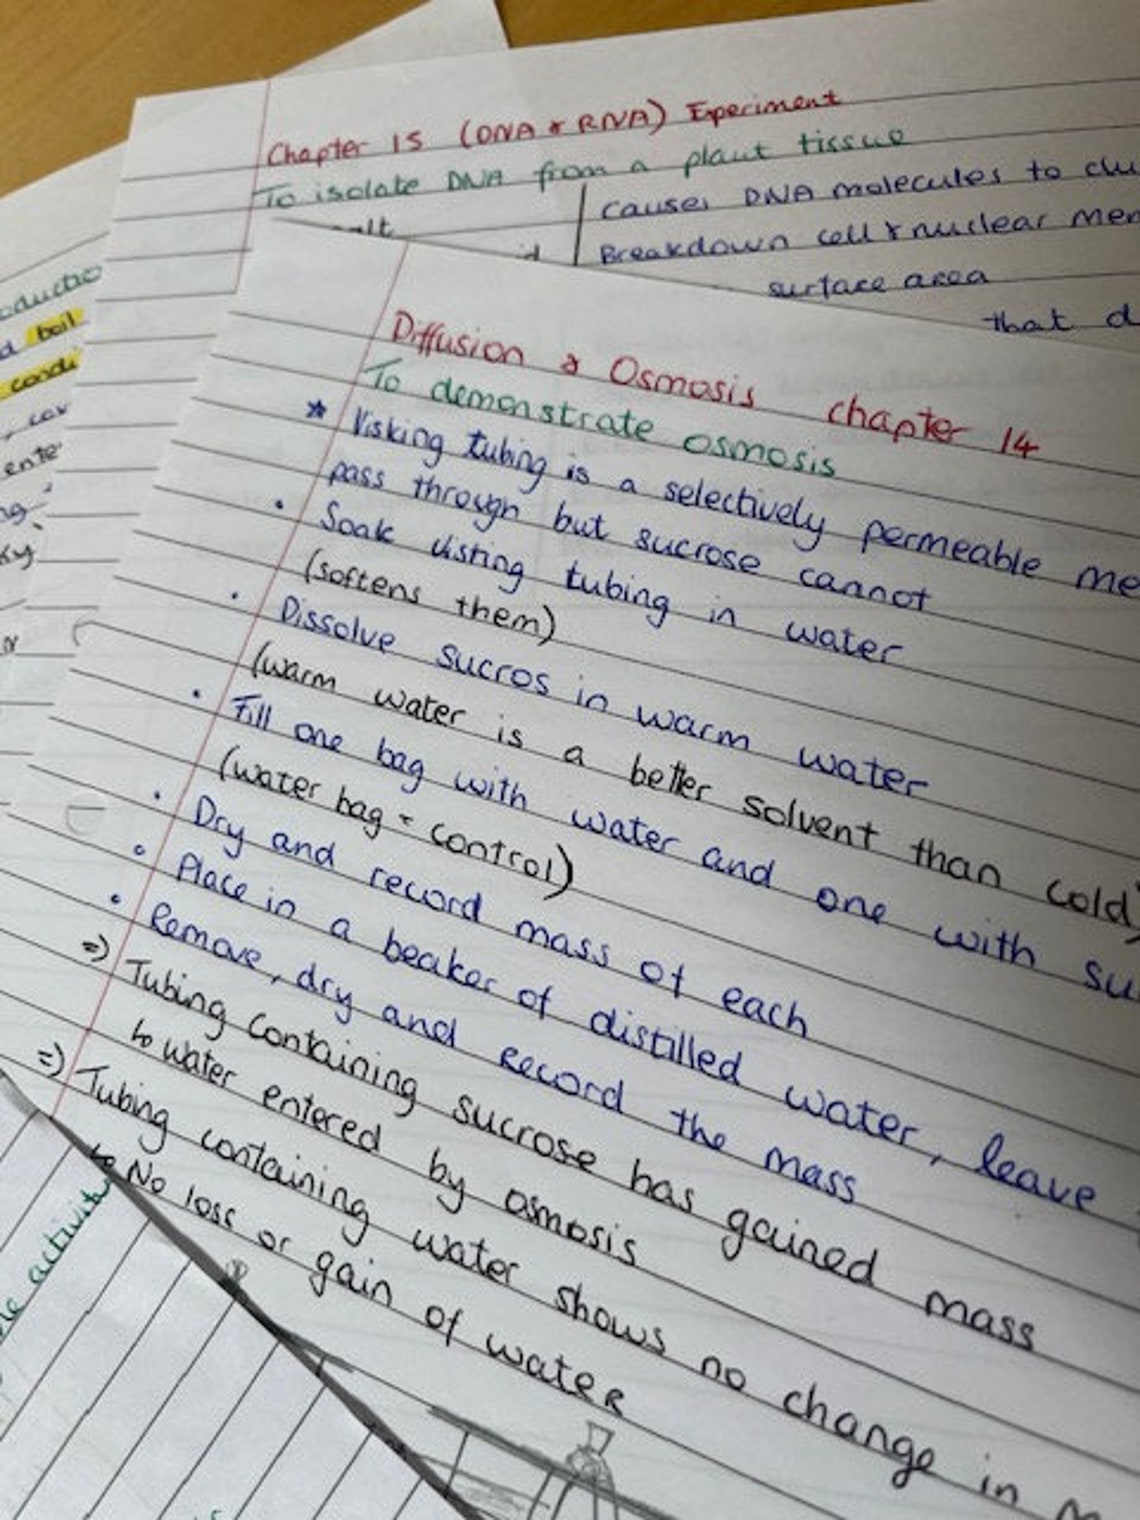 Chapter 15 (DNA & RNA) Experiment
To isolate DNA from a plant tissue
causes DNA molecules to
Breakdown cell & nuclear
surface area
that
boil
Diffusion & Osmosis chapter 14
To demonstrate osmosis
* Visking tubing is a selectively permeable
pass through but sucrose cannot
• Soak Visting tubing in water
(softens them)
• Dissolve sucros in warm water
(warm water is a better solvent than cold)
• Fill one bag with water and one with su
(water bag = control)
• Dry and record mass of each
• Place in a beaker of distilled water, leave
• Remove, dry and record the mass
=) Tubing containing sucrose has gained mass
↳ water entered by osmosis
=) Tubing containing water shows no change in
↳ No loss or gain of water
activity